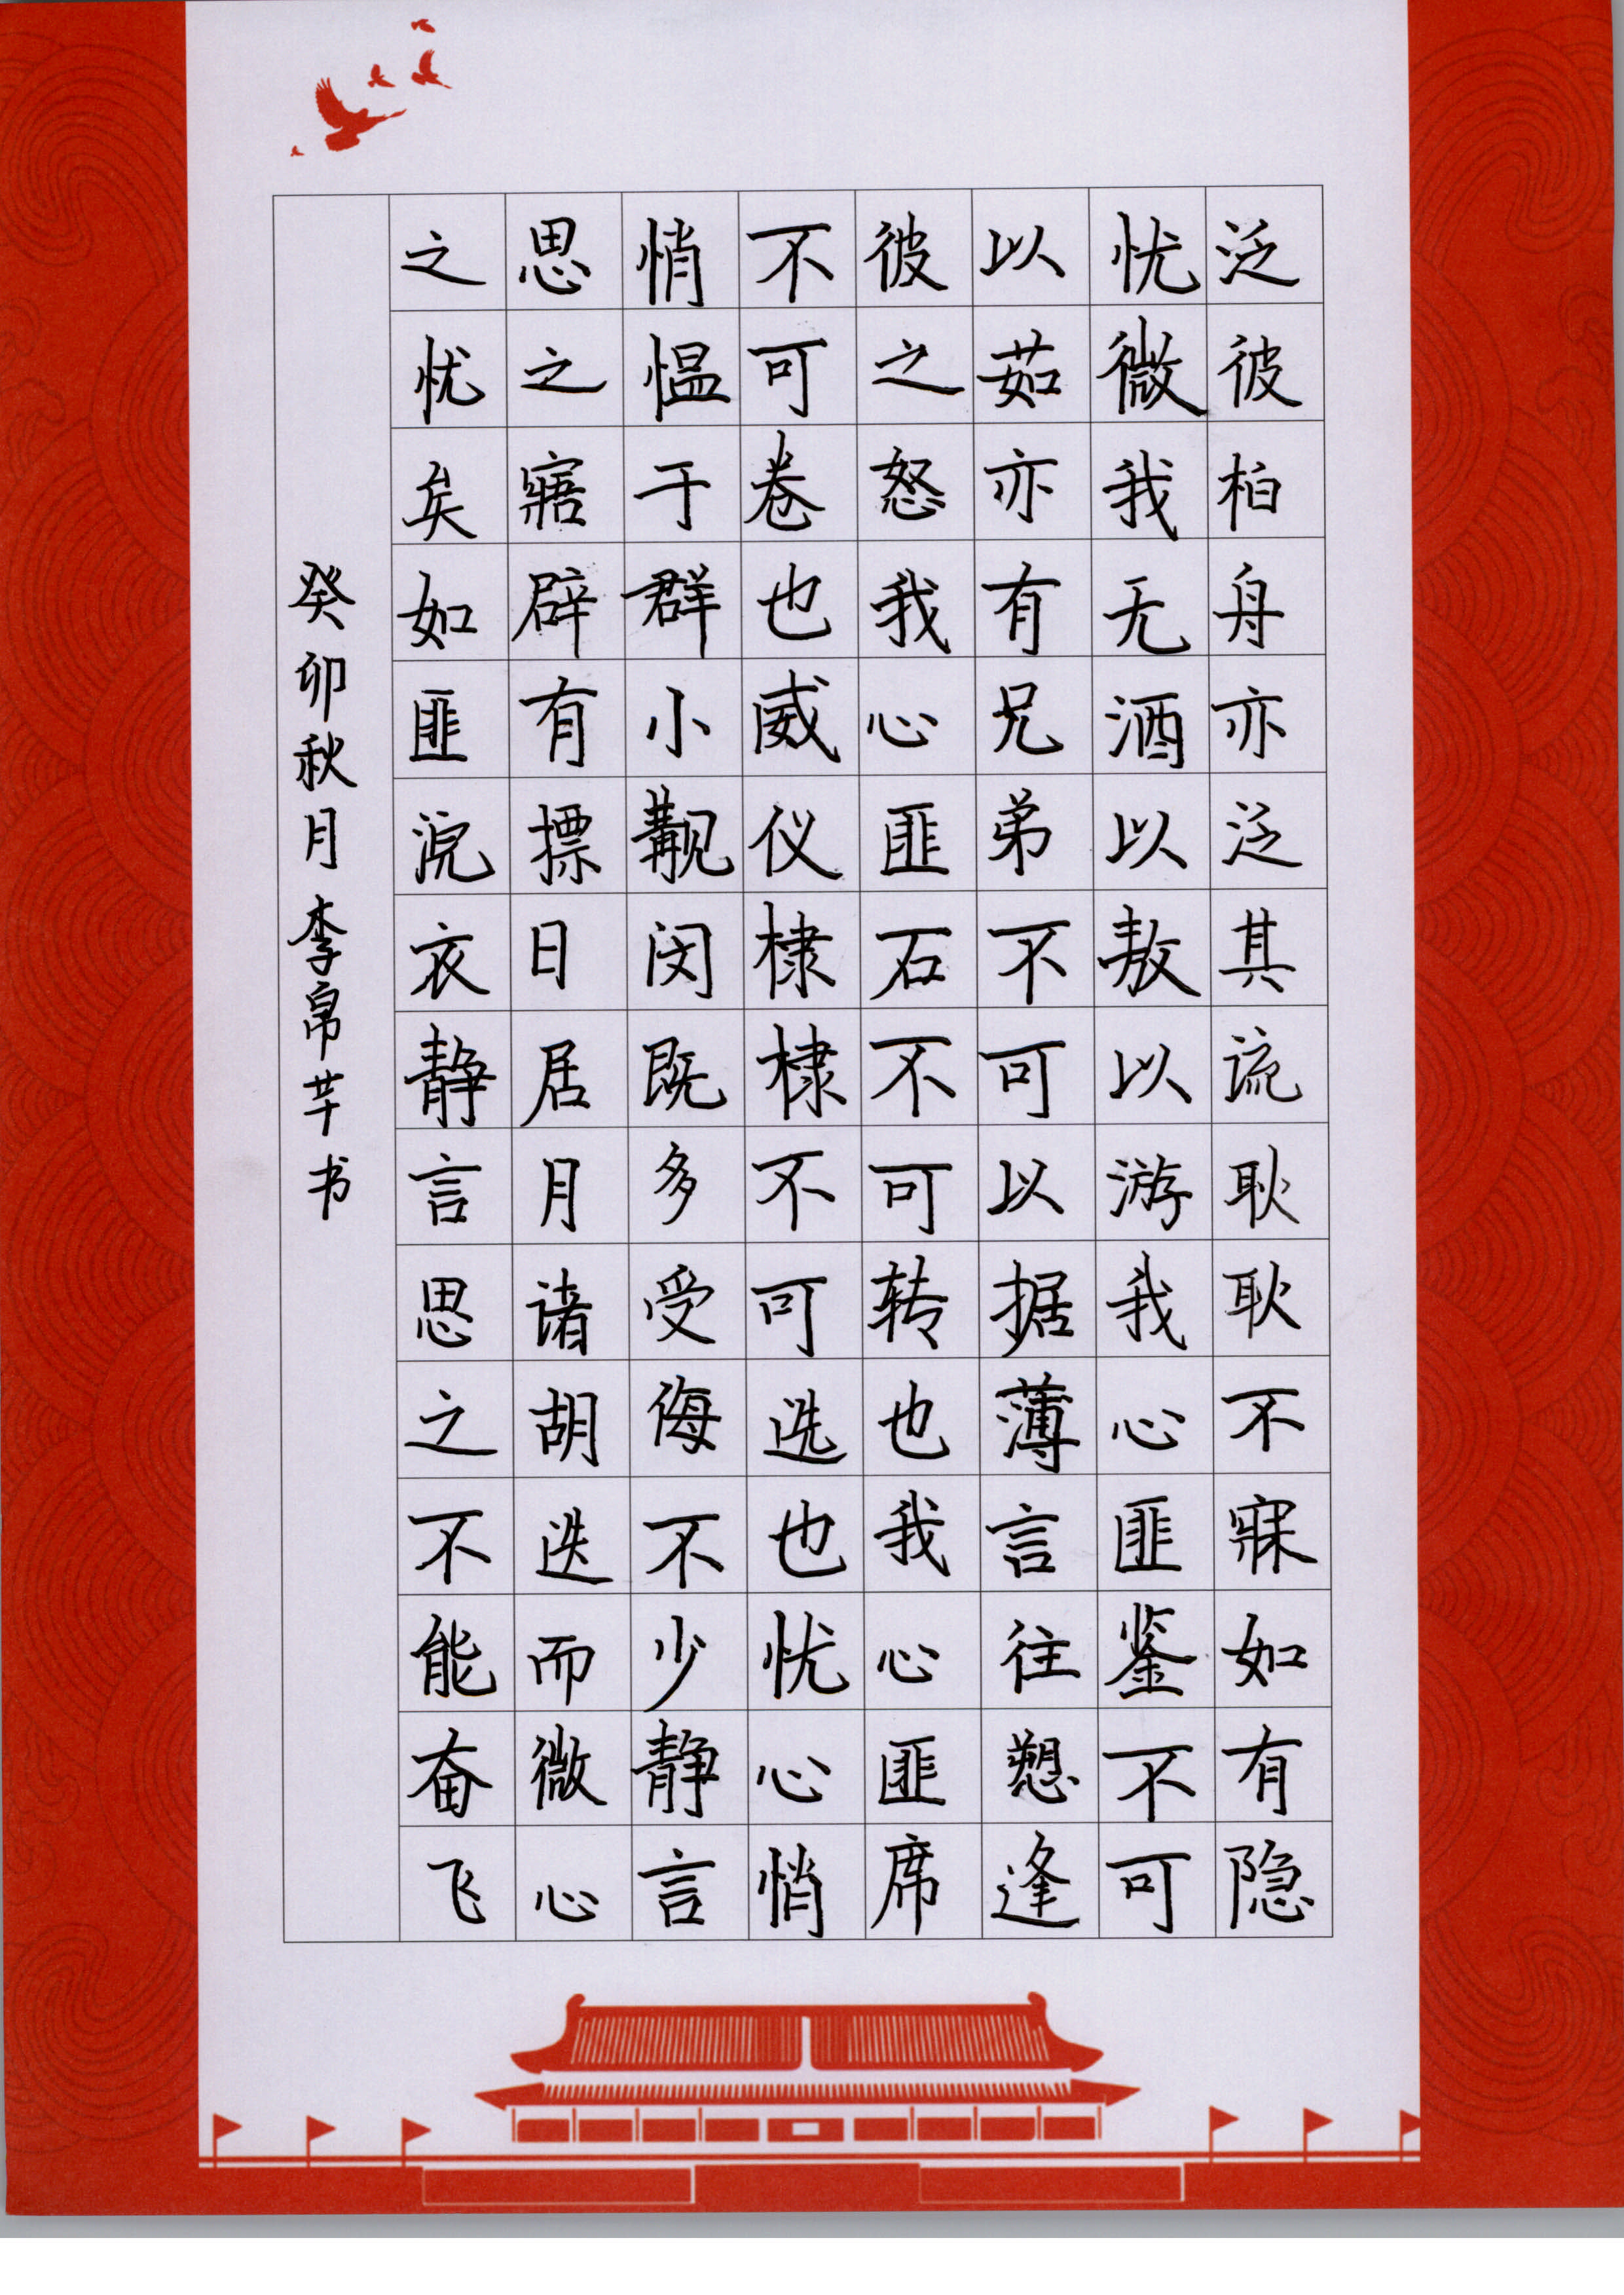 泛彼柏舟亦泛其流耿耿不寐如有隐
忧微我无酒以敖以游我心匪鉴不可
以茹亦有兄弟不可以据薄言往愬逢
彼之怒我心匪石不可转也我心匪席
不可卷也威仪棣棣不可选也忧心悄
悄愠于群小觏闵既多受侮不少静言
思之寤辟有摽日居月诸胡迭而微心
之忧矣如匪浣衣静言思之不能奋飞
癸卯秋月李帛芊书